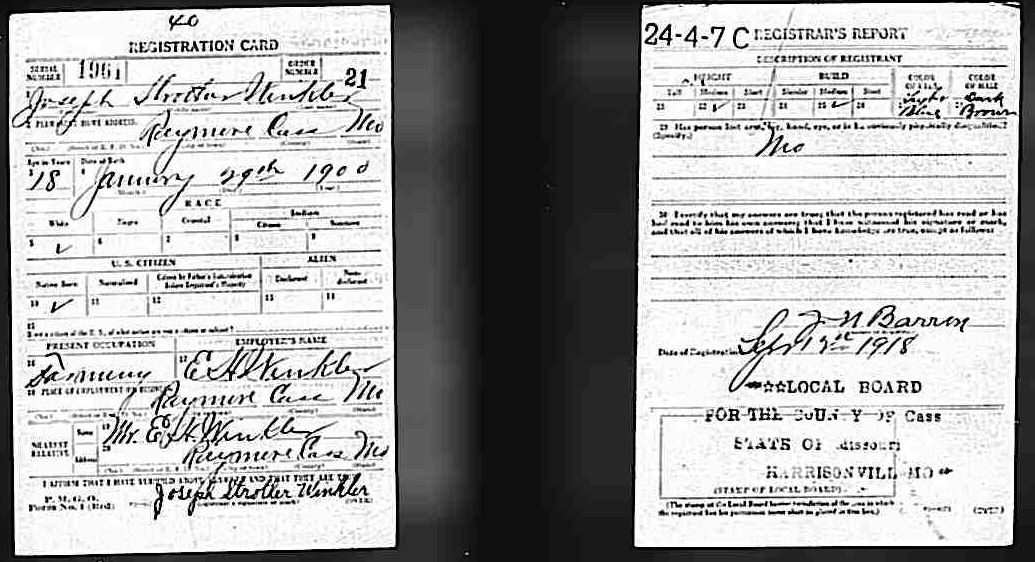 40
REGISTRATION CARD
SERIAL NUMBER 1961 ORDER NUMBER 21
Joseph Strotter Winkler
Raymore Cass Mo
Age in Years Date of Birth
18 January 29th 1900
RACE
White Negro Oriental Indian
Citizen
5 ✓ 6 7 8 9
U. S. CITIZEN ALIEN
Native Born Naturalized Declared
10 ✓ 11 12 13 14
15
PRESENT OCCUPATION EMPLOYER'S NAME
16 Farming 17 E H Winkler
18 PLACE OF EMPLOYMENT OR BUSINESS
Raymore Cass Mo
NEAREST RELATIVE Name Mr. E. H. Winkler
Address Raymore Cass Mo
I AFFIRM THAT I HAVE VERIFIED ABOVE ANSWERS AND THAT THEY ARE TRUE
P. M. G. O.
Form No. 1 (Red) Joseph Strotter Winkler
24-4-7 C REGISTRAR'S REPORT
DESCRIPTION OF REGISTRANT
HEIGHT BUILD COLOR OF EYES COLOR OF HAIR
Tall Medium Short Slender Medium Stout
21 22 ✓ 23 24 25 ✓ 26 27 Light Blue 28 Dark Brown
29 Has person lost arm, leg, hand, eye, or is he obviously physically disqualified?
(Specify.)
No
30 I certify that my answers are true; that the person registered has read or has
had read to him his own answers; that I have witnessed his signature or mark,
and that all of his answers of which I have knowledge are true, except as follows:
Barren
Date of Registration Sept 12 1918
LOCAL BOARD
FOR THE COUN Y OF Cass
STATE OF Missouri
HARRISONVILL MO
(STAMP OF LOCAL BOARD)
(The stamp of the Local Board having jurisdiction of the area in which
the registrant has his permanent home shall be placed in this box.)